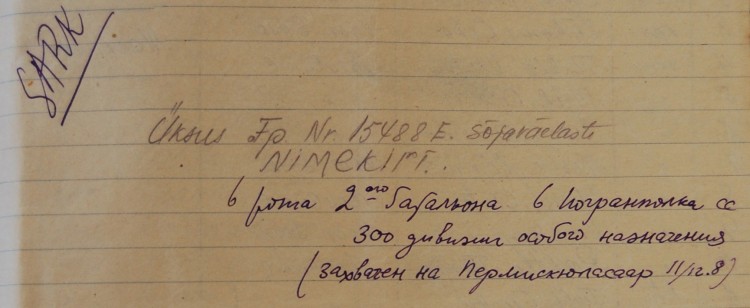 SARK
Üksus Fp. Nr. 15488 E. Sõjaväelaste
NIMEKIRI.
6 рота 2ого батальона 6 погранполка сс
300 дивизии особого назначения
(захвачен на Пермискюласаар 11/IX.8)